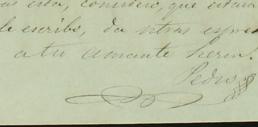 esta, considero, que estan
le escribo, da otras espres
a tu amante herm.
Pedro